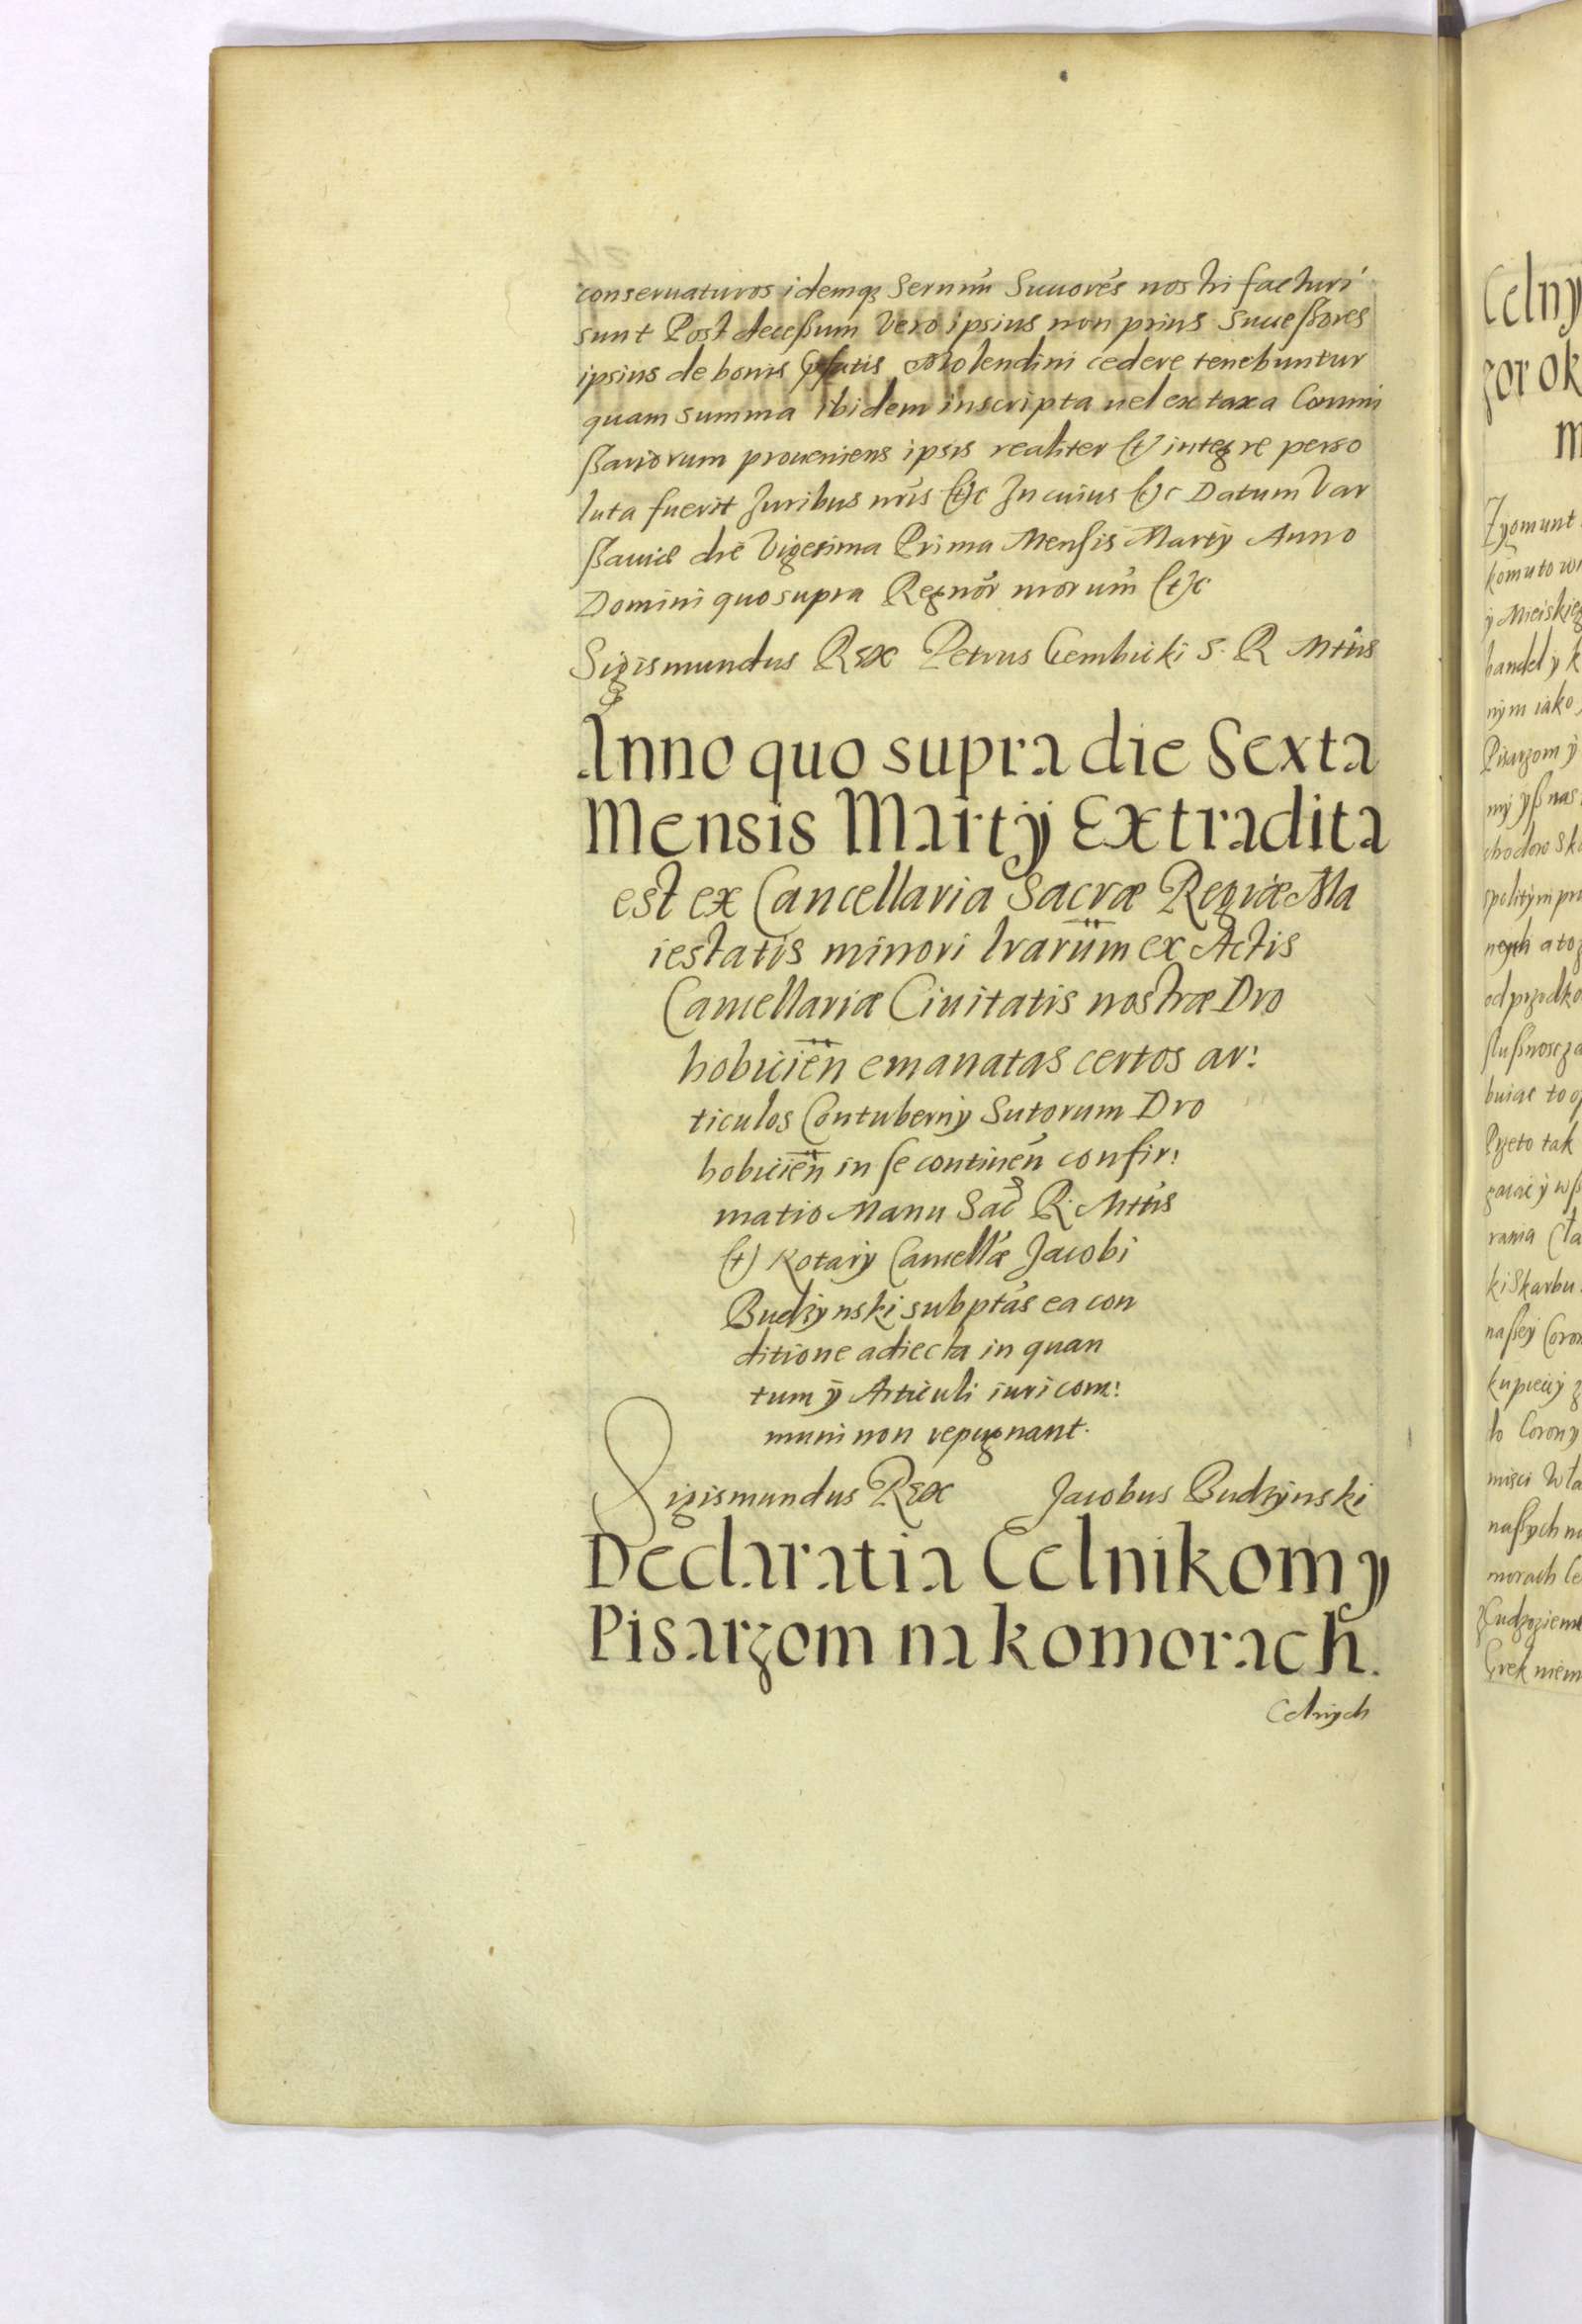 conseruaturos idemq3 Sernmi Succorés nostri facturi
sunt Post deceßum Vero ipsius non prius Succeßores
ipsius de bonis Molendini cedere tenebuntur
quam summa ibidem inscripta uel ex taxa Commi
ßariorum proueniens ipsis realiter et integre perso
luta fuerit Juribus nris etc In cuius etc Datum Var
ßauiæ die Vigesima Prima Mensis Martÿ Anno
Domini quo supra Regnor nrorum etc
Sigismundus Rex Petrus Gembicki S. R. Mttis
Anno quo supra die Sexta
Mensis Martÿ Extradita
est ex Cancellaria Sacræ Regiæ Ma
iestatis minori lrarum ex Actis
Cancellariæ Ciuitatis nostræ Dro
hobicien emanatas certos ar:
ticulos Contubernÿ Sutorum Dro
hobicien in se continen confir:
matio Manu Sac R. Mttis
et Notarÿ Cancellæ Jacobi
Budzÿnski subptas ea con
ditione adiecta in quan
tum ÿ Articuli iuri com:
muni non repugnant.
Sigismundus Rex Jacobus Budzÿnski
Declaratia Celnikom y
Pisarzom na komorach.
Celnÿch
Celny
zor ok
m
Zygmunt
komu to wi
ÿ Mieiskieg
handel ÿ k
nÿm iako
Pisarzom ÿ
mÿ ÿß nas
od przodko
Przeto tak
rania
ki Skarbu
naßeÿ Coron
kupieckÿ z
lo Coronÿ
naßÿch na
morach Ce
Grek niem